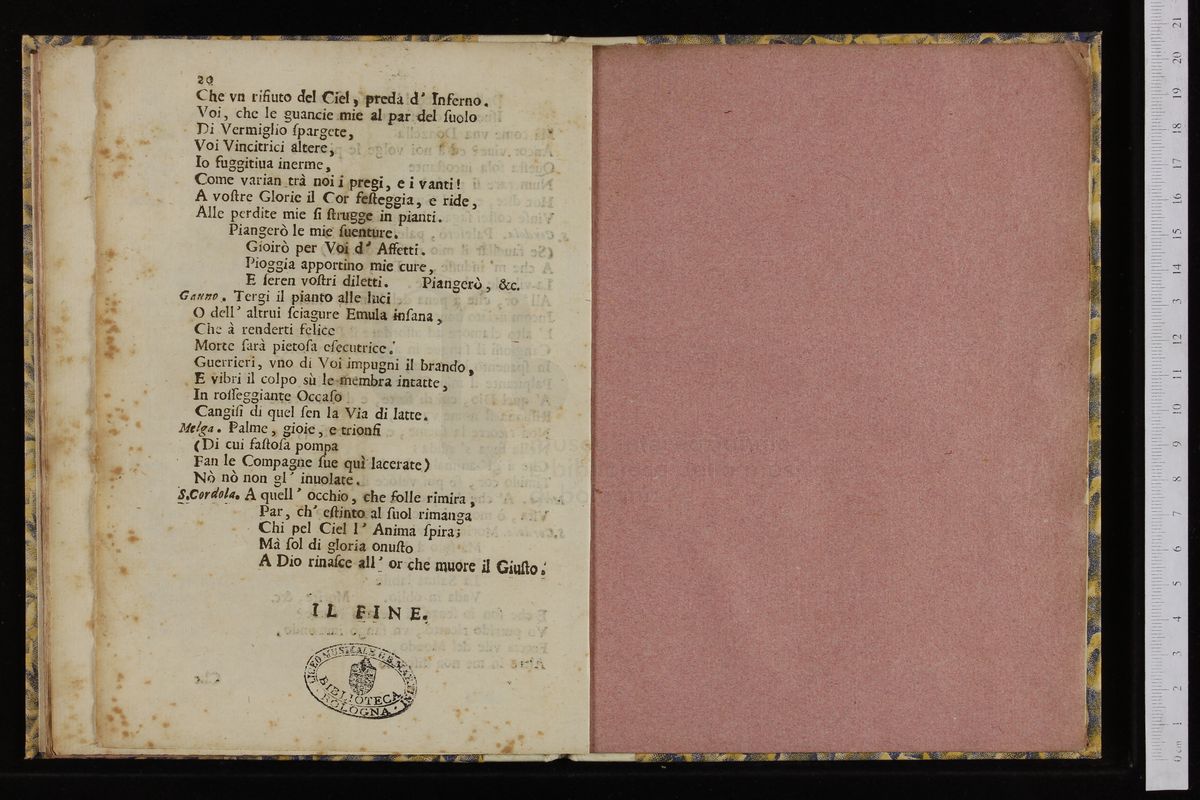 20
Che vn rifiuto del Ciel, preda d' Inferno.
Voi, che le guancie mie al par del ſuolo
Di Vermiglio ſpargete,
Voi Vincitrici altere,
Io fuggitiua inerme,
Come varian trà noi i pregi, e i vanti!
A voſtre Glorie il Cor feſteggia, e ride,
Alle perdite mie ſi ſtrugge in pianti.
Piangerò le mie ſuenture.
Gioirò per Voi d' Affetti.
Pioggia apportino mie cure,
E ſeren voſtri diletti. Piangerò, &c.
Gauno. Tergi il pianto alle luci
O dell' altrui ſciagure Emula inſana,
Che à renderti felice
Morte ſarà pietoſa eſecutrice.
Guerrieri, vno di Voi impugni il brando,
E vibri il colpo sù le membra intatte,
In roſſeggiante Occaſo
Cangiſi di quel ſen la Via di latte.
Melga. Palme, gioie, e trionfi
(Di cui faſtoſa pompa
Fan le Compagne ſue quì lacerate)
Nò nò non gl' inuolate.
S.Cordola. A quell' occhio, che folle rimira,
Par, ch' eſtinto al ſuol rimanga
Chi pel Ciel l' Anima ſpira;
Mà ſol di gloria onuſto
A Dio rinaſce all' or che muore il Giuſto.
IL FINE.
LICEO MUSICALE G.B. MARTINI
BIBLIOTECA
BOLOGNA
0 cm 1 2 3 4 5 6 7 8 9 10 11 12 13 14 15 16 17 18 19 20 21